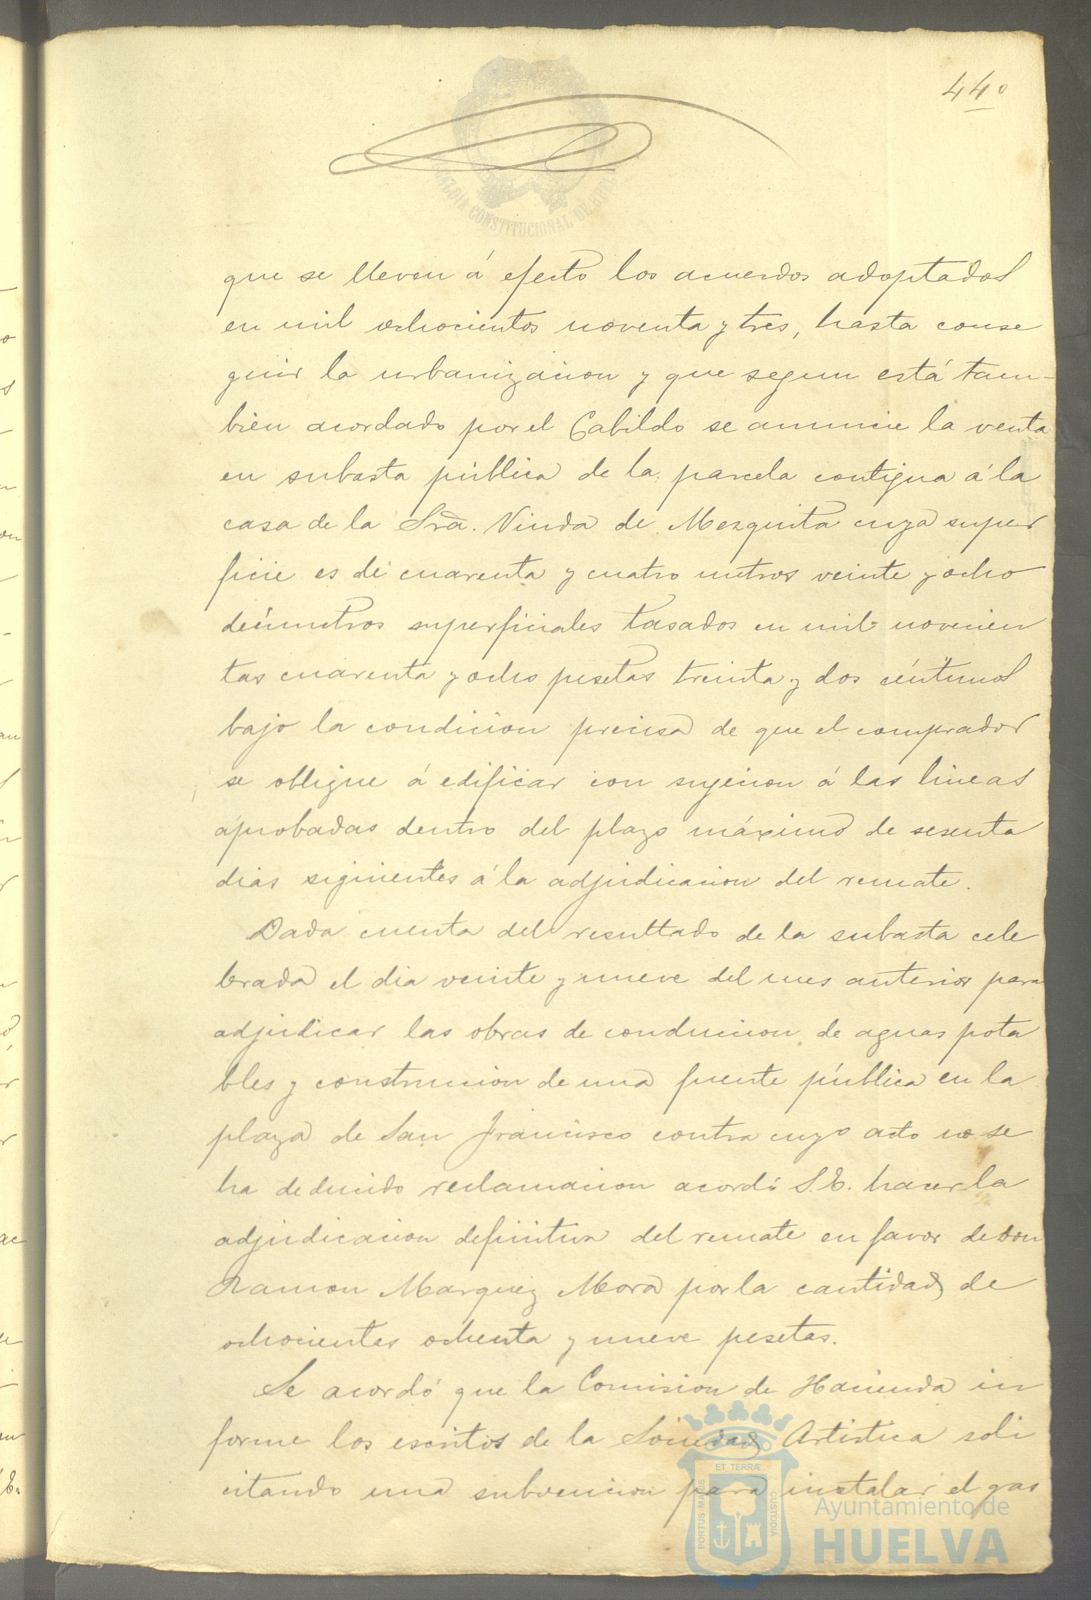 440
ALCALDIA CONSTITUCIONAL DE HUELVA
que se lleven á efecto los acuerdos adoptados
en mil ochocientos noventa y tres, hasta conse
guir la urbanizacion y que segun está tam-
bien acordado por el Cabildo se anuncie la venta
en subasta pública de la parcela contigua á la
casa de la Sra. Viuda de Mezquita cuya super
ficie es de cuarenta y cuatro metros veinte y ocho
decímetros superficiales tasados en mil novecien
tas cuarenta y ocho pesetas treinta y dos céntimos
bajo la condicion precisa de que el comprador
se obligue á edificar con sujecion á las lineas
aprobadas dentro del plazo máximo de sesenta
dias siguientes á la adjudicacion del remate.
Dada cuenta del resultado de la subasta cele
brada el dia veinte y nueve del mes anterior para
adjudicar las obras de conduccion de aguas pota
bles y construccion de una fuente pública en la
plaza de San Francisco contra cuyo acto no se
ha deducido reclamacion acordó S.E. hacer la
adjudicacion definitiva del remate en favor de Don
Ramon Marquez Mora por la cantidad de
ochocientas ochenta y nueve pesetas.
Se acordó que la Comision de Hacienda in
forme los escritos de la Sociedad Artistica soli
citando una subvencion para instalar el gas
PORTUS MARIS ET TERRÆ CUSTODIA
Ayuntamiento de
HUELVA